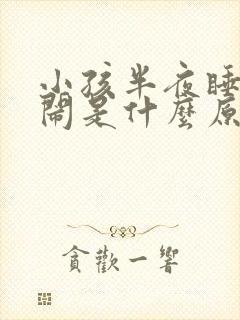 小孩半夜睡
鬧是什麼原
貪歡一響